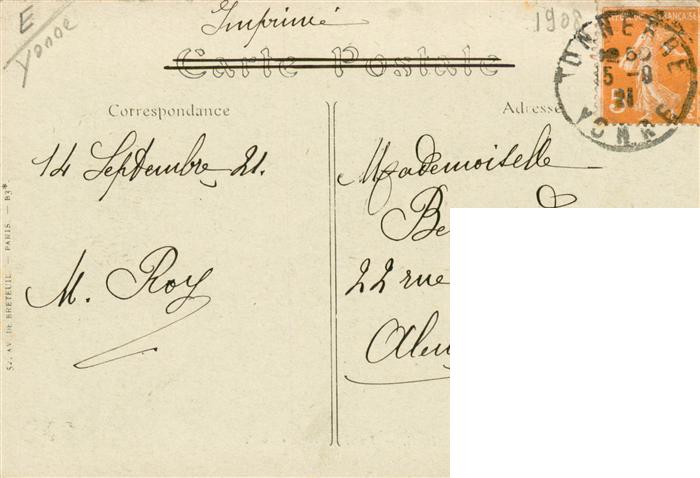 E
Yonne
Imprimé
1908
Carte Postale
TONNERRE
15 -9
21
YONNE
Correspondance
Adresse
14 Septembre 21.
M. Roy
Mademoiselle
22 rue
52, AV. DE BRETEUIL — PARIS — B3*